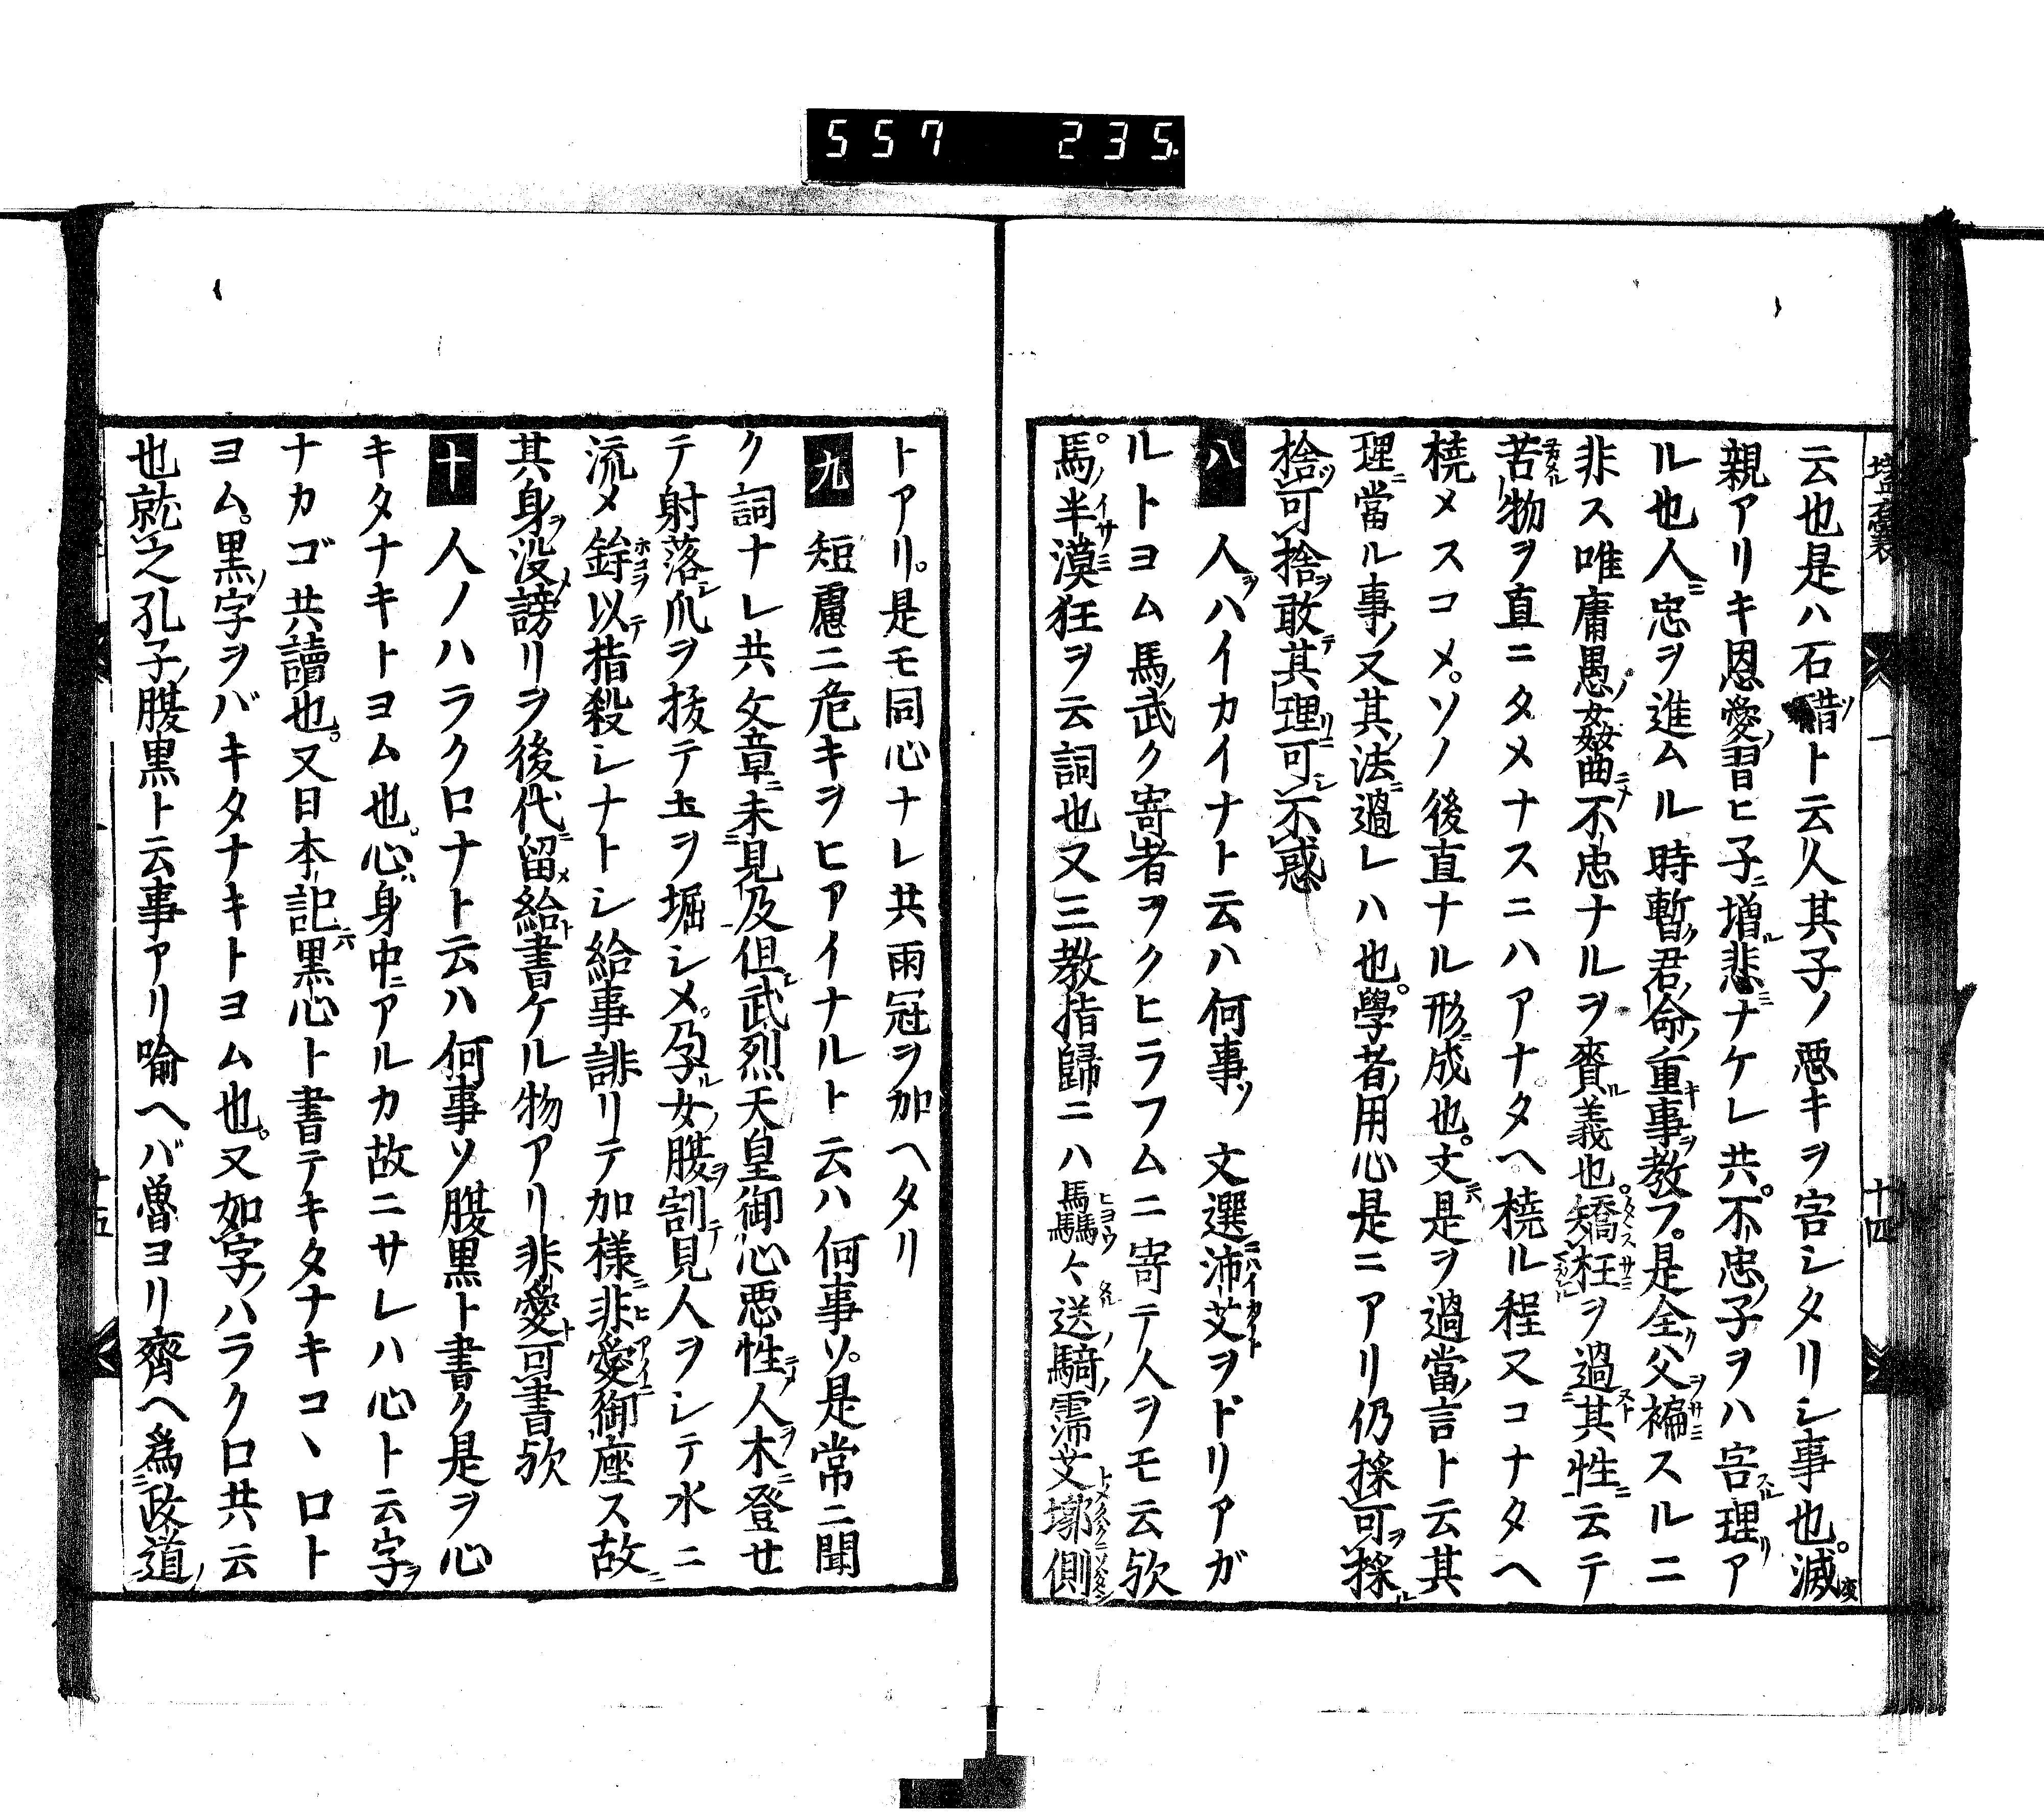 557 235
壒囊
一
十四
云也是ハ石碏ト云人其子ノ悪キヲ害シタリシ事也。滅
親アリキ恩愛ノ習ヒ子ニ増ル悲ナケレ共。不忠ノ子ヲハ害スル理リア
ル也人ニ忠ヲ進ムル時暫ク君ノ命ノ重キ事ヲ教フ。是全ク父ヲ褊スルニ
非ス唯庸愚ノ姧曲ニメ不忠ナルヲ賚ル義也。矯枉ヲ過其性ニ云テ
苦物ヲ直ニタメナスニハアナタヘ橈ル程又コナタヘ
橈メスコメ。ソノ後直ナル形ニ成也。文ニ是ヲ過當ノ言ト云其
理ニ當ル事ノ又其ノ法ニ過レハ也。學者ノ用心是ニアリ仍採可ヲ採ル
捨ツ可捨ヲ敢テ其理リニ可シ不惑
八 人ヲハイカイナト云ハ何事ソ 文選ニ沛艾ヲドリアガ
ルトヨム馬ノ武ク寄者ヲクヒラフムニ寄テ人ヲモ云欤
馬ノ半漠狂ヲ云詞也又三教指歸ニハ驫々送騎ノ霈艾墎側
トアリ。是モ同心ナレ共雨冠ヲ加ヘタリ
九 短慮ニ危キヲヒアイナルト云ハ何事ソ。是常ニ聞
ク詞ナレ共文章ニ未見及但シ武烈天皇御心悪性ニメ人ヲ木ニ登セ
テ射落シ爪ヲ抜テ土ヲ堀シメ。孕ル女ノ腹ヲ割テ見人ヲシテ水ニ
流メ鉾ヲ以テ指殺シナトシ給事誹リテ加様ニ非愛ニ御座ス故ニ
其身ヲ没メ謗リヲ後代ニ留メ給ト書ケル物アリ非愛ト可書欤
十 人ノハラクロナト云ハ何事ソ腹黒ト書ク是ヲ心
キタナキトヨム也。心ハ身中ニアルカ故ニサレハ心ト云字ヲ
ナカゴ共讀也。又日本記ニ六黒心ト書テキタナキコヽロト
ヨム。黒ノ字ヲバキタナキトヨム也。又如字ノハラクロ共云
也就之孔子ノ腹黒ト云事アリ喩ヘバ魯ヨリ齊ヘ為ニ政道ノ